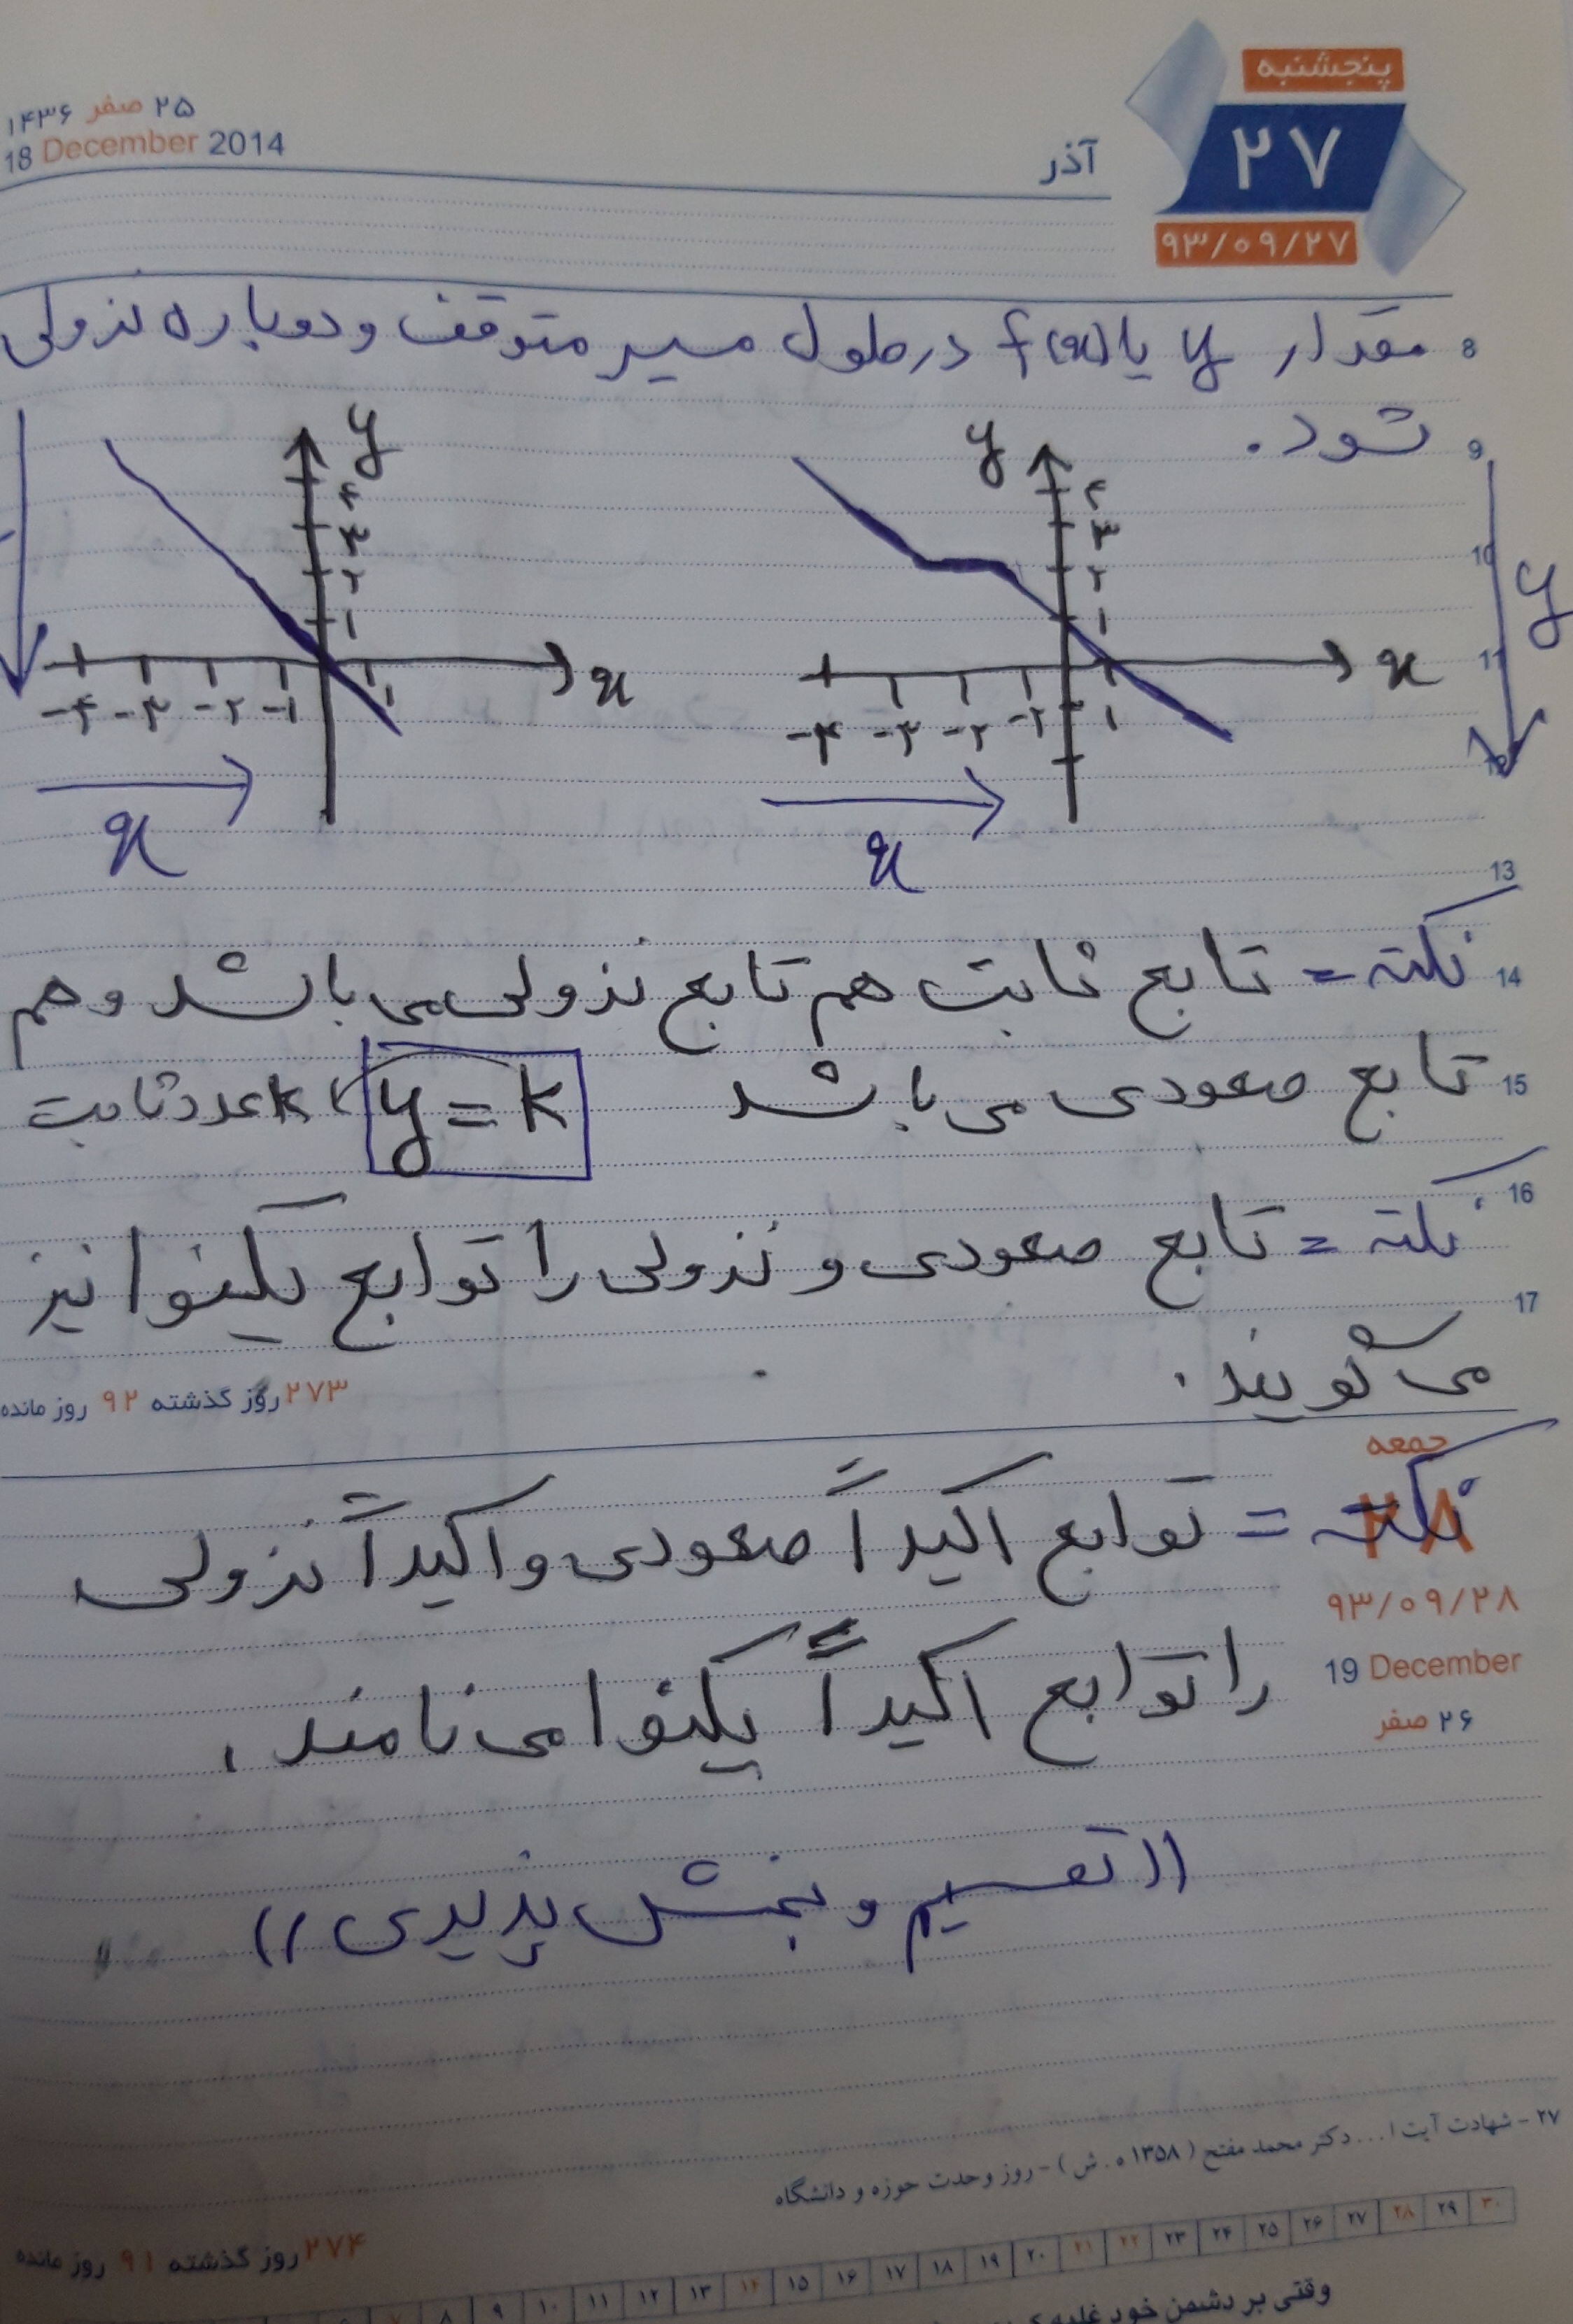 پنجشنبه
۲۷
آذر
۹۳/۰۹/۲۷
۲۵ صفر ۱۴۳۶
18 December 2014
8 مقدار y یا f(x) در طول مسیر متوقف و دوباره نزولی
9 شود.
y
۴
۳
۲
۱
x
-۴ -۳ -۲ -۱ ۱
x
y
۴
۳
۲
۱
x
-۴ -۳ -۲ -۲ ۱
x
y
10
11
12
13
14 نکته = تابع ثابت هم تابع نزولی می باشد و هم
15 تابع صعودی می باشد y = k ، k عدد ثابت
16
نکته = تابع صعودی و نزولی را توابع یکنوا نیز
17
می گویند.
۲۷۳ روز گذشته ۹۲ روز مانده
جمعه
۲۸
نکته = توابع اکیداً صعودی و اکیداً نزولی
۹۳/۰۹/۲۸
را توابع اکیداً یکنوا می نامند.
19 December
۲۶ صفر
((تقسیم و بخش پذیری))
۲۷ - شهادت آیت ا... دکتر محمد مفتح (۱۳۵۸ ه . ش) - روز وحدت حوزه و دانشگاه
۲۷۴ روز گذشته ۹۱ روز مانده
۷ ۸ ۹ ۱۰ ۱۱ ۱۲ ۱۳ ۱۴ ۱۵ ۱۶ ۱۷ ۱۸ ۱۹ ۲۰ ۲۱ ۲۲ ۲۳ ۲۴ ۲۵ ۲۶ ۲۷ ۲۸ ۲۹ ۳۰
وقتی بر دشمن خود غلبه